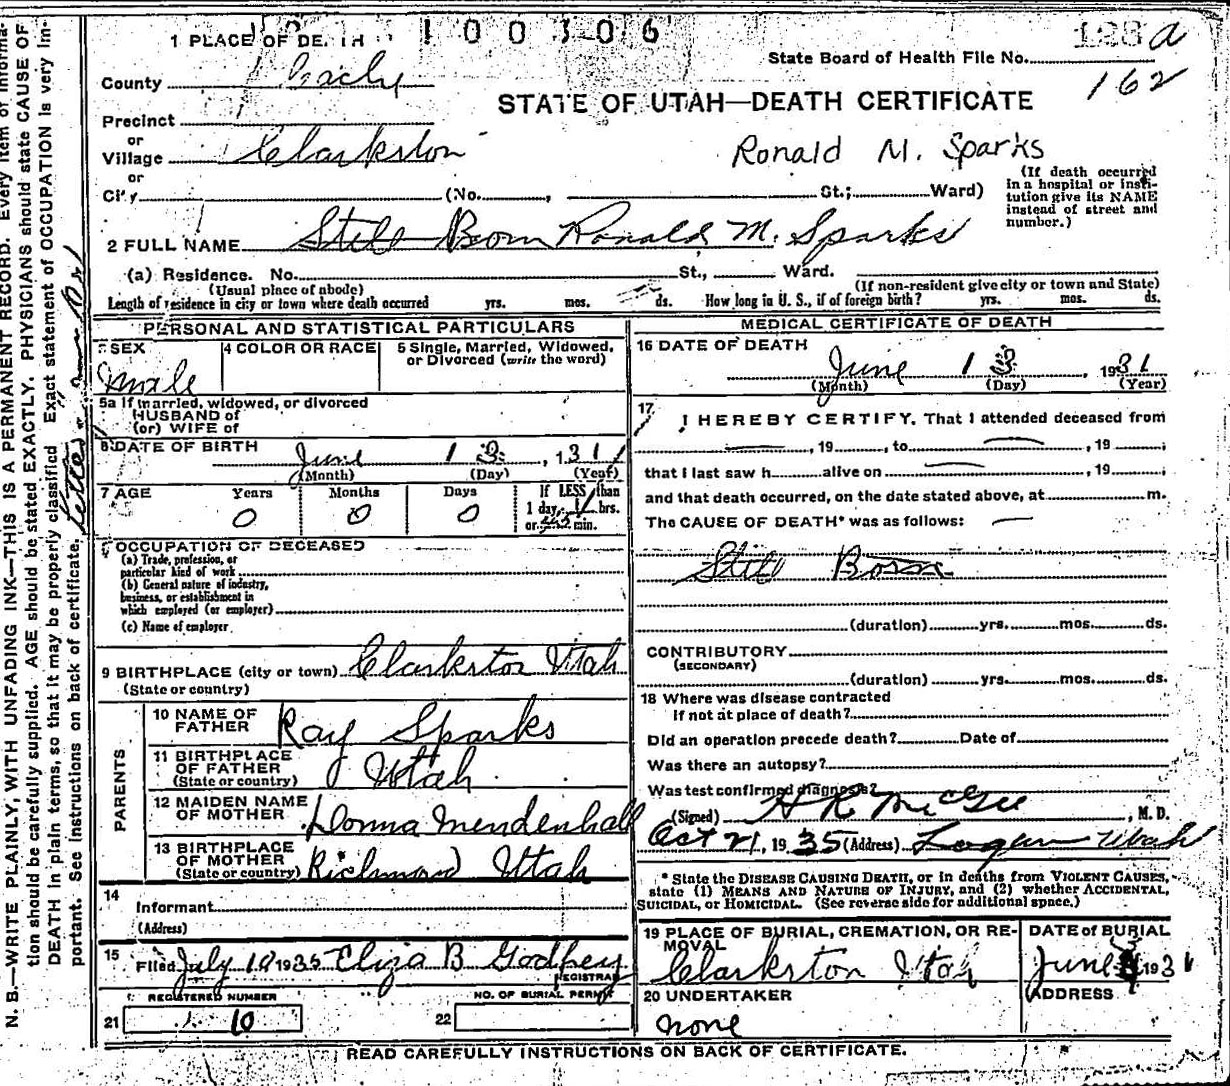 100306
128 a
162
1 PLACE OF DEATH
State Board of Health File No.
County Cache
STATE OF UTAH—DEATH CERTIFICATE
Precinct
or
Village Clarkston
Ronald M. Sparks
or
City (No. , St.; Ward)
(If death occurred in a hospital or institution give its NAME instead of street and number.)
2 FULL NAME Still Born Ronald M. Sparks
(a) Residence. No. St., Ward.
(Usual place of abode) (If non-resident give city or town and State)
Length of residence in city or town where death occurred yrs. mos. ds. How long in U. S., if of foreign birth? yrs. mos. ds.
PERSONAL AND STATISTICAL PARTICULARS
3 SEX 4 COLOR OR RACE 5 Single, Married, Widowed, or Divorced (write the word)
Male
5a If married, widowed, or divorced
HUSBAND of
(or) WIFE of
6 DATE OF BIRTH
June 13, 1931
(Month) (Day) (Year)
7 AGE Years Months Days If LESS than
0 0 0 1 day, hrs.
or min.
8 OCCUPATION OF DECEASED
(a) Trade, profession, or
particular kind of work
(b) General nature of industry,
business, or establishment in
which employed (or employer)
(c) Name of employer
9 BIRTHPLACE (city or town) Clarkston Utah
(State or country)
PARENTS
10 NAME OF FATHER Ray Sparks
11 BIRTHPLACE OF FATHER Utah
(State or country)
12 MAIDEN NAME OF MOTHER Donna Mendenhall
13 BIRTHPLACE OF MOTHER Richmond Utah
(State or country)
14
Informant
(Address)
15
Filed July 10 1935 Eliza B Godfrey
REGISTRAR
REGISTERED NUMBER NO. OF BURIAL PERMIT
21 10 22
MEDICAL CERTIFICATE OF DEATH
16 DATE OF DEATH
June 13, 1931
(Month) (Day) (Year)
17
I HEREBY CERTIFY, That I attended deceased from
, 19 , to , 19 ;
that I last saw h alive on , 19 ;
and that death occurred, on the date stated above, at m.
The CAUSE OF DEATH* was as follows:
Still Born
(duration) yrs. mos. ds.
CONTRIBUTORY
(SECONDARY)
(duration) yrs. mos. ds.
18 Where was disease contracted
If not at place of death?
Did an operation precede death? Date of
Was there an autopsy?
Was test confirmed diagnosis?
(Signed) H R McGee, M. D.
Oct 21, 1935 (Address) Logan Utah
* State the DISEASE CAUSING DEATH, or in deaths from VIOLENT CAUSES,
state (1) MEANS AND NATURE OF INJURY, and (2) whether ACCIDENTAL,
SUICIDAL, or HOMICIDAL. (See reverse side for additional space.)
19 PLACE OF BURIAL, CREMATION, OR REMOVAL DATE of BURIAL
Clarkston Utah June 1931
20 UNDERTAKER ADDRESS
none
READ CAREFULLY INSTRUCTIONS ON BACK OF CERTIFICATE.
N. B.—WRITE PLAINLY, WITH UNFADING INK—THIS IS A PERMANENT RECORD. Every item of informa-
tion should be carefully supplied. AGE should be stated EXACTLY. PHYSICIANS should state CAUSE OF
DEATH in plain terms, so that it may be properly classified. Exact statement of OCCUPATION is very im-
portant. See instructions on back of certificate.